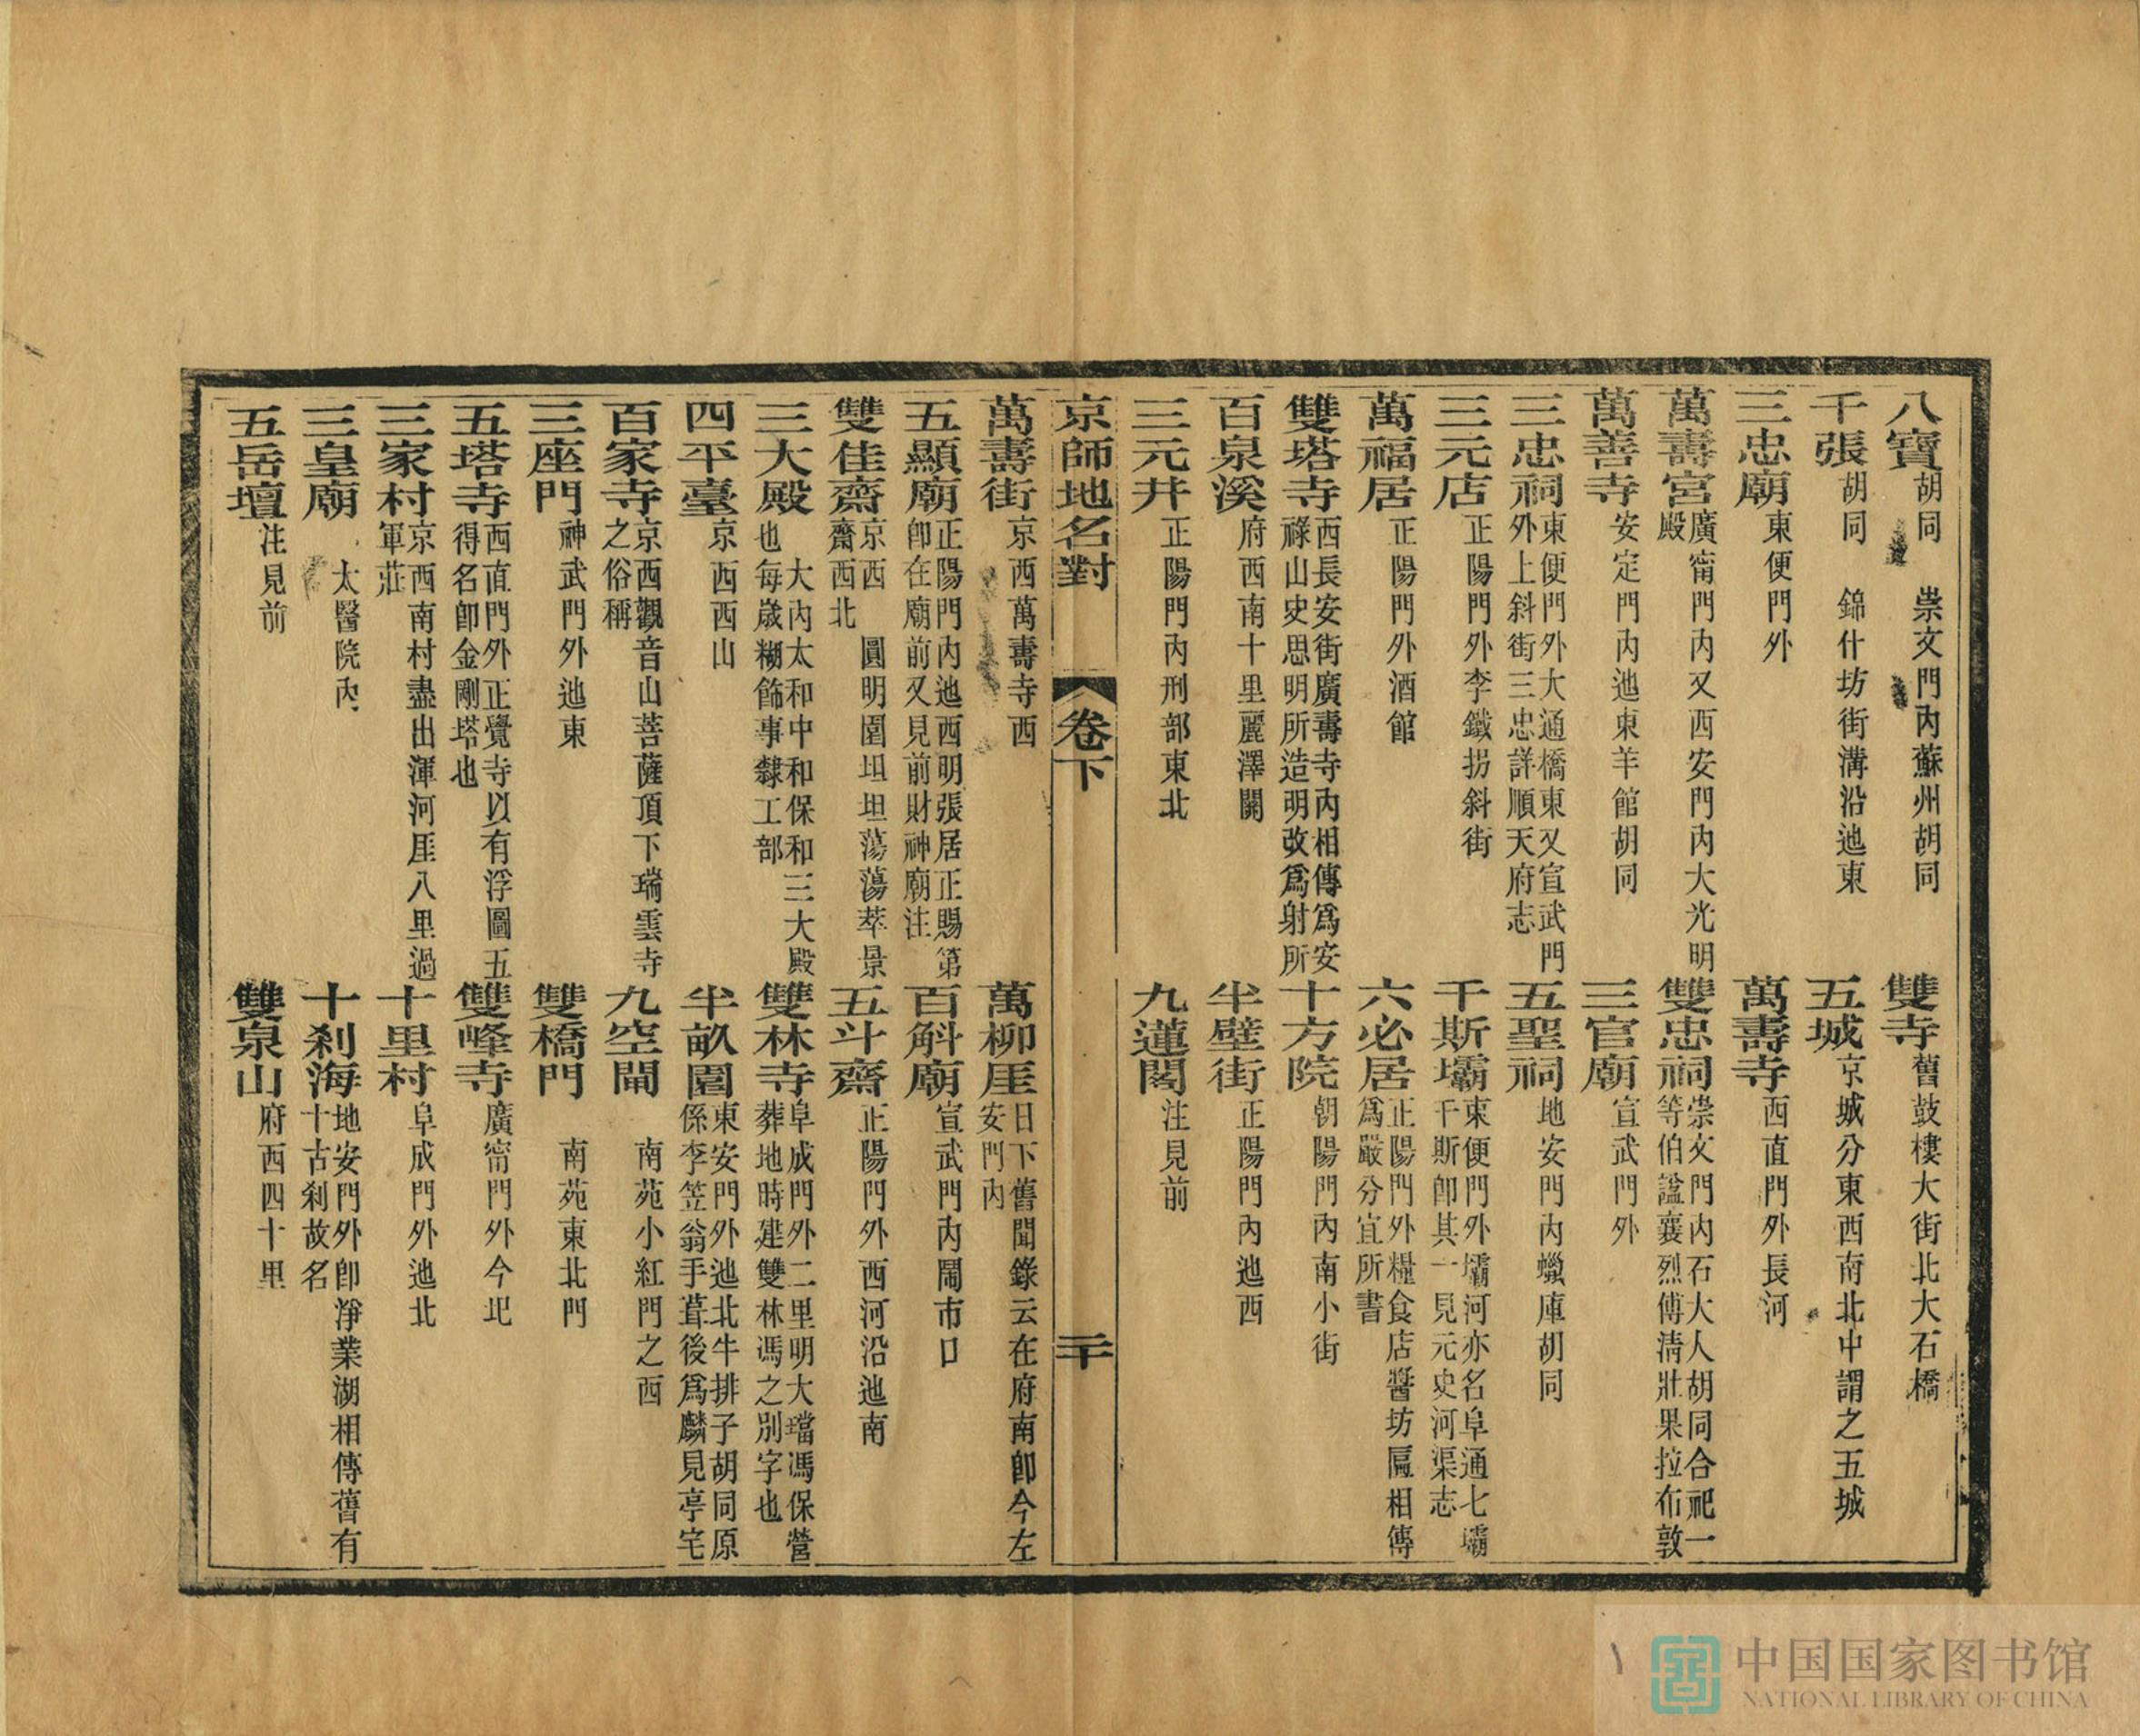 八寶胡同 崇文門內蘇州胡同 雙寺舊鼓樓大街北大石橋
千張胡同 錦什坊街溝沿迤東 五城京城分東西南北中謂之五城
三忠廟東便門外 萬壽寺西直門外長河
萬壽宮廣甯門內又西安門內大光明殿 雙忠祠崇文門內石大人胡同合祀一等伯諡襄烈傅清壯果拉布敦
萬善寺安定門內迤東羊館胡同 三官廟宣武門外
三忠祠東便門外大通橋東又宣武門外上斜街三忠詳順天府志 五聖祠地安門內蠟庫胡同
三元店正陽門外李鐵拐斜街 千斯壩東便門外壩河亦名阜通七壩千斯卽其一見元史河渠志
萬福居正陽門外酒館 六必居正陽門外糧食店醬坊匾相傳爲嚴分宜所書
雙塔寺西長安街廣壽寺內相傳爲安祿山史思明所造明改爲射所 十方院朝陽門內南小街
百泉溪府西南十里麗澤關 半壁街正陽門內迤西
三元井正陽門內刑部東北 九蓮閣注見前
京師地名對 卷下 二十
萬壽街京西萬壽寺西 萬柳厓日下舊聞錄云在府南卽今左安門內
五顯廟正陽門內迤西明張居正賜第卽在廟前又見前財神廟注 百斛廟宣武門內鬧市口
雙佳齋京西 圓明園坦坦蕩蕩萃景齋西北 五斗齋正陽門外西河沿迤南
三大殿 大內太和中和保和三大殿也每歲糊飾事隸工部 雙林寺阜成門外二里明大璫馮保營葬地時建雙林馮之別字也
四平臺京西西山 半畝園東安門外迤北牛排子胡同原係李笠翁手葺後爲麟見亭宅
百家寺京西觀音山菩薩頂下瑞雲寺之俗稱 九空閘 南苑小紅門之西
三座門神武門外迤東 雙橋門 南苑東北門
五塔寺西直門外正覺寺以有浮圖五得名卽金剛塔也 雙峰寺廣甯門外今圯
三家村京西南村盡出渾河厓八里過軍莊 十里村阜成門外迤北
三皇廟 太醫院內 十剎海地安門外卽淨業湖相傳舊有十古剎故名
五岳壇注見前 雙泉山府西四十里
中国国家图书馆
NATIONAL LIBRARY OF CHINA